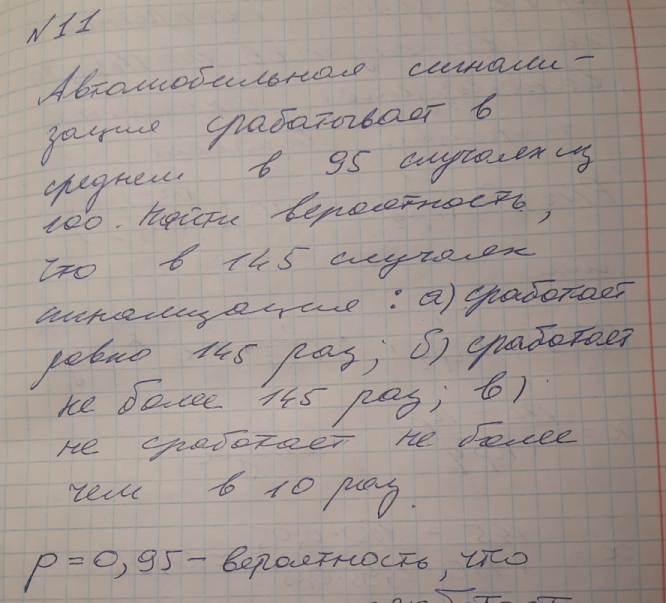 №11
Автомобильная сигнали-
зация срабатывает в
среднем в 95 случаях из
100. Найти вероятность,
что в 145 случаях
сигнализация: а) сработает
равно 145 раз; б) сработает
не более 145 раз; в)
не сработает не более
чем в 10 раз.
p = 0,95 – вероятность, что